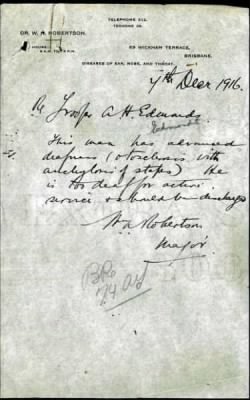 TELEPHONE 212.
DR. W. N. ROBERTSON.
HOURS:
69 WICKHAM TERRACE,
BRISBANE.
DISEASES OF EAR, NOSE, AND THROAT.
7th Decr 1916.
Re Trooper A H Edwards
This man has advanced
deafness (otosclerosis with
anchylosis of stapes) He
is too deaf for active
service & should be discharged
Robertson
Major